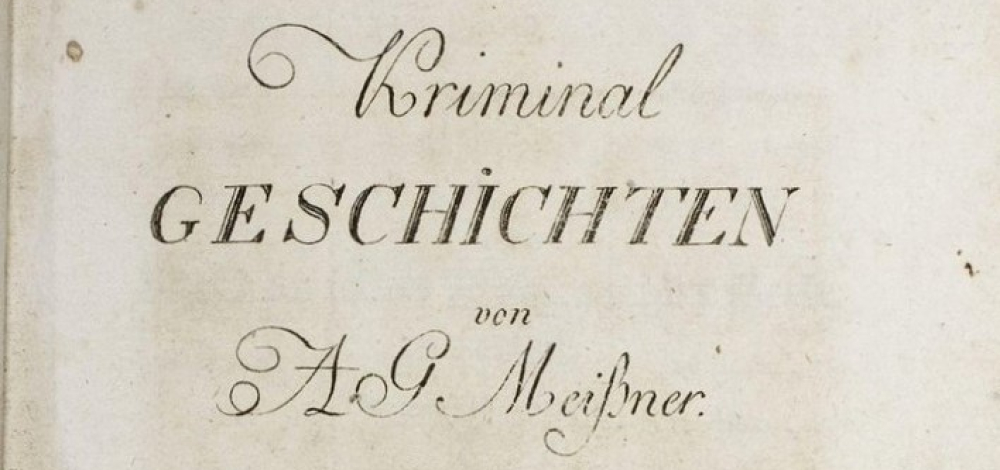 Kriminal
GESCHİCHTEN
von
A G Meißner.